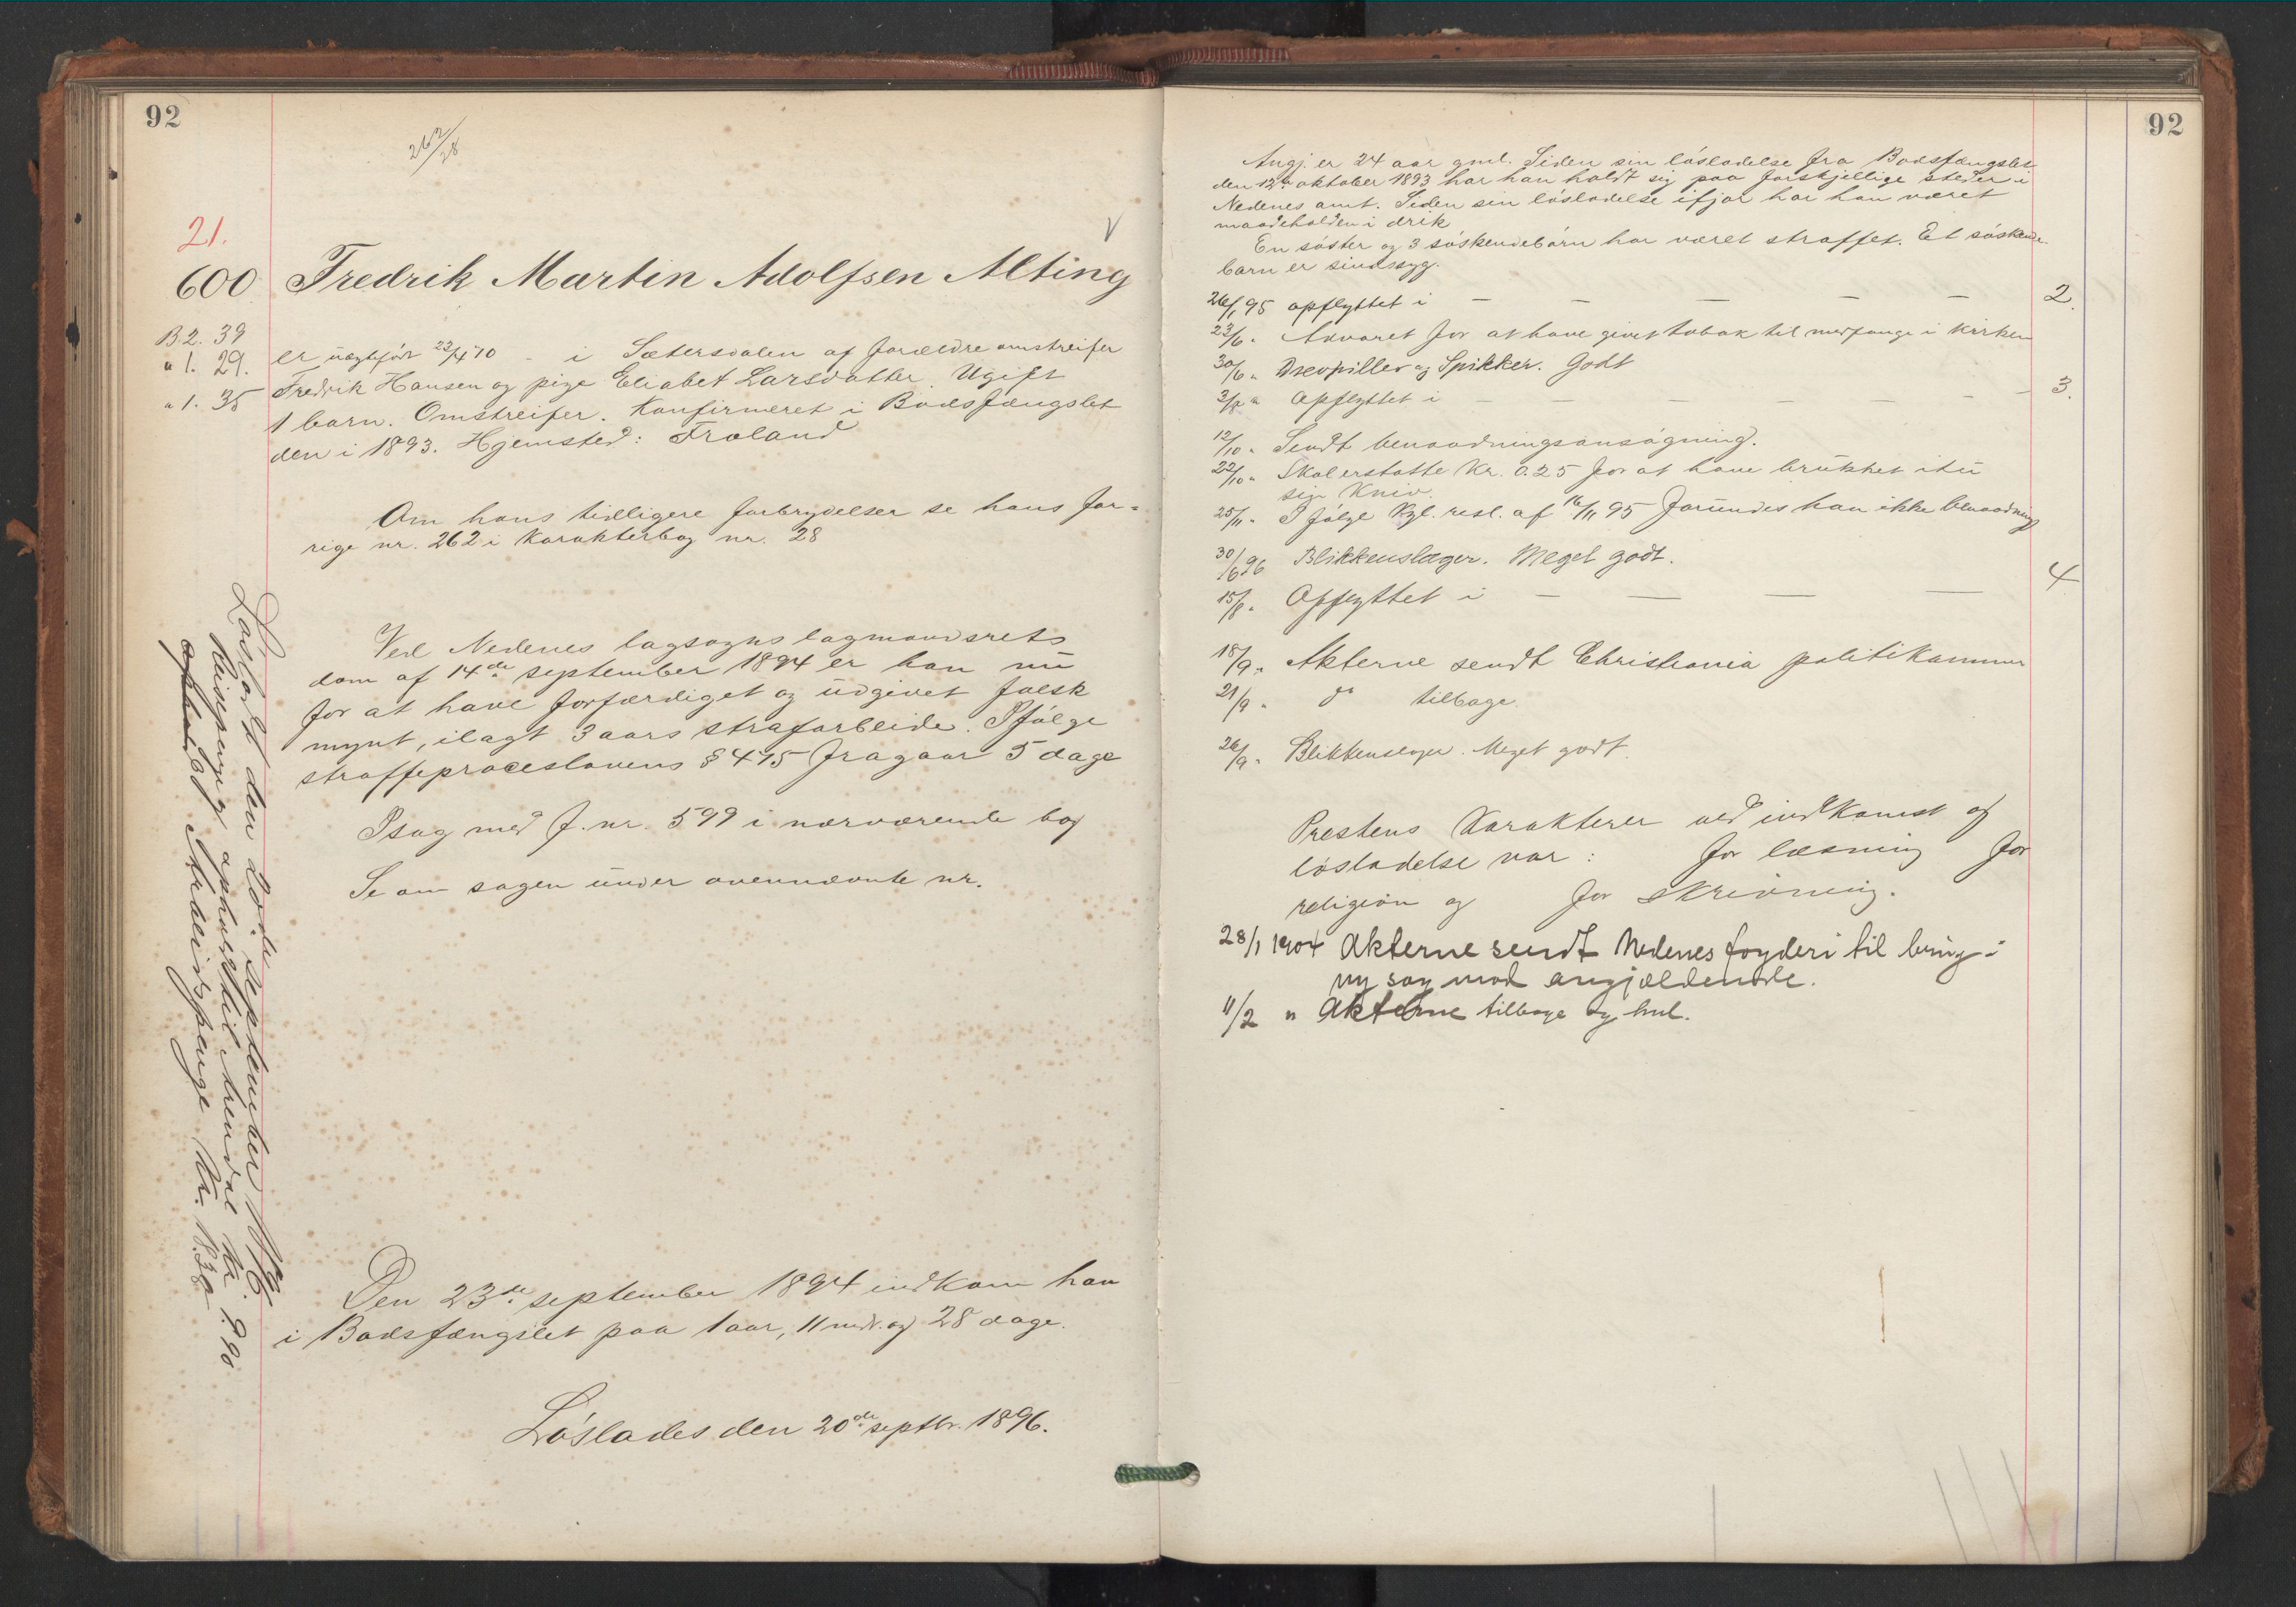 92
262/28
21.
600 Fredrik Martin Adolfsen Alting
B.2. 39
" 1. 29.
" 1. 35
er uægtefødt 22/4 70 - i Sætersdalen af forældre omstreifer
Fredrik Hansen og pige Eliabet Larsdatter. Ugift
1 barn. Omstreifer. Konfirmeret i Bodsfængslet
den i 1893. Hjemsted: Froland
Om hans tidligere forbrydelser se hans for=
rige nr. 262 i karakterbog nr. 28
Ved Nedenes lagsogns lagmandsrets
dom af 14de september 1894 er han nu
for at have forfærdiget og udgivet falsk
mynt, ilagt 3 aars strafarbeide. Ifølge
straffeproceslovens § 475 fragaar 5 dage
I sag med f. nr. 599 i nærværende bog
Se om sagen under ovennævnte nr.
Den 23de september 1894 indkom han
i Bodsfængslet paa 1 aar, 11 mdr. og 28 dage.
Løslades den 20de septbr. 1896.
Løsladt den 20de september 1896.
Reisepenge og ophold til Arendal kr. 9.90
Arbeidspenge kr. 18.38
92
Angj. er 24 aar gml. Siden sin løsladelse fra Bodsfængslet
den 12te oktober 1893 har han holdt sig paa forskjellige steder i
Nedenes amt. Siden sin løsladelse ifjor har han været
maadeholden i drik
En søster og 3 søskendebørn har været straffet. Et søskende-
barn er sindssyg.
26/1 95 opflyttet i — — — — — 2.
23/6 " Advaret for at have givet tobak til medfange i kirken
30/6 " Drevpiller og Spikker. Godt
3/8 " Opflyttet i — — — — — — 3.
12/10 " Sendt benaadningsansøgning.
22/10 " Skal erstatte Kr. 0.25 for at have brukket itu
sin Kniv.
25/11 " I følge Kgl. resl. af 16/11 95 forundes han ikke benaadning
30/6 96 Blikkenslager. Meget godt.
15/8 " Opflyttet i — — — — 4
18/9 " Akterne sendt Christiania politikammer
21/9 " do tilbage.
26/9 " Blikkenslager. Meget godt.
Prestens Karakterer ved indkomst og
løsladelse var: for læsning for
religion og for skrivning.
28/1 1904 Akterne sendt Nedenes fogderi til brug i
ny sag mod angjældende.
11/2 " Akterne tilbage og hnl.